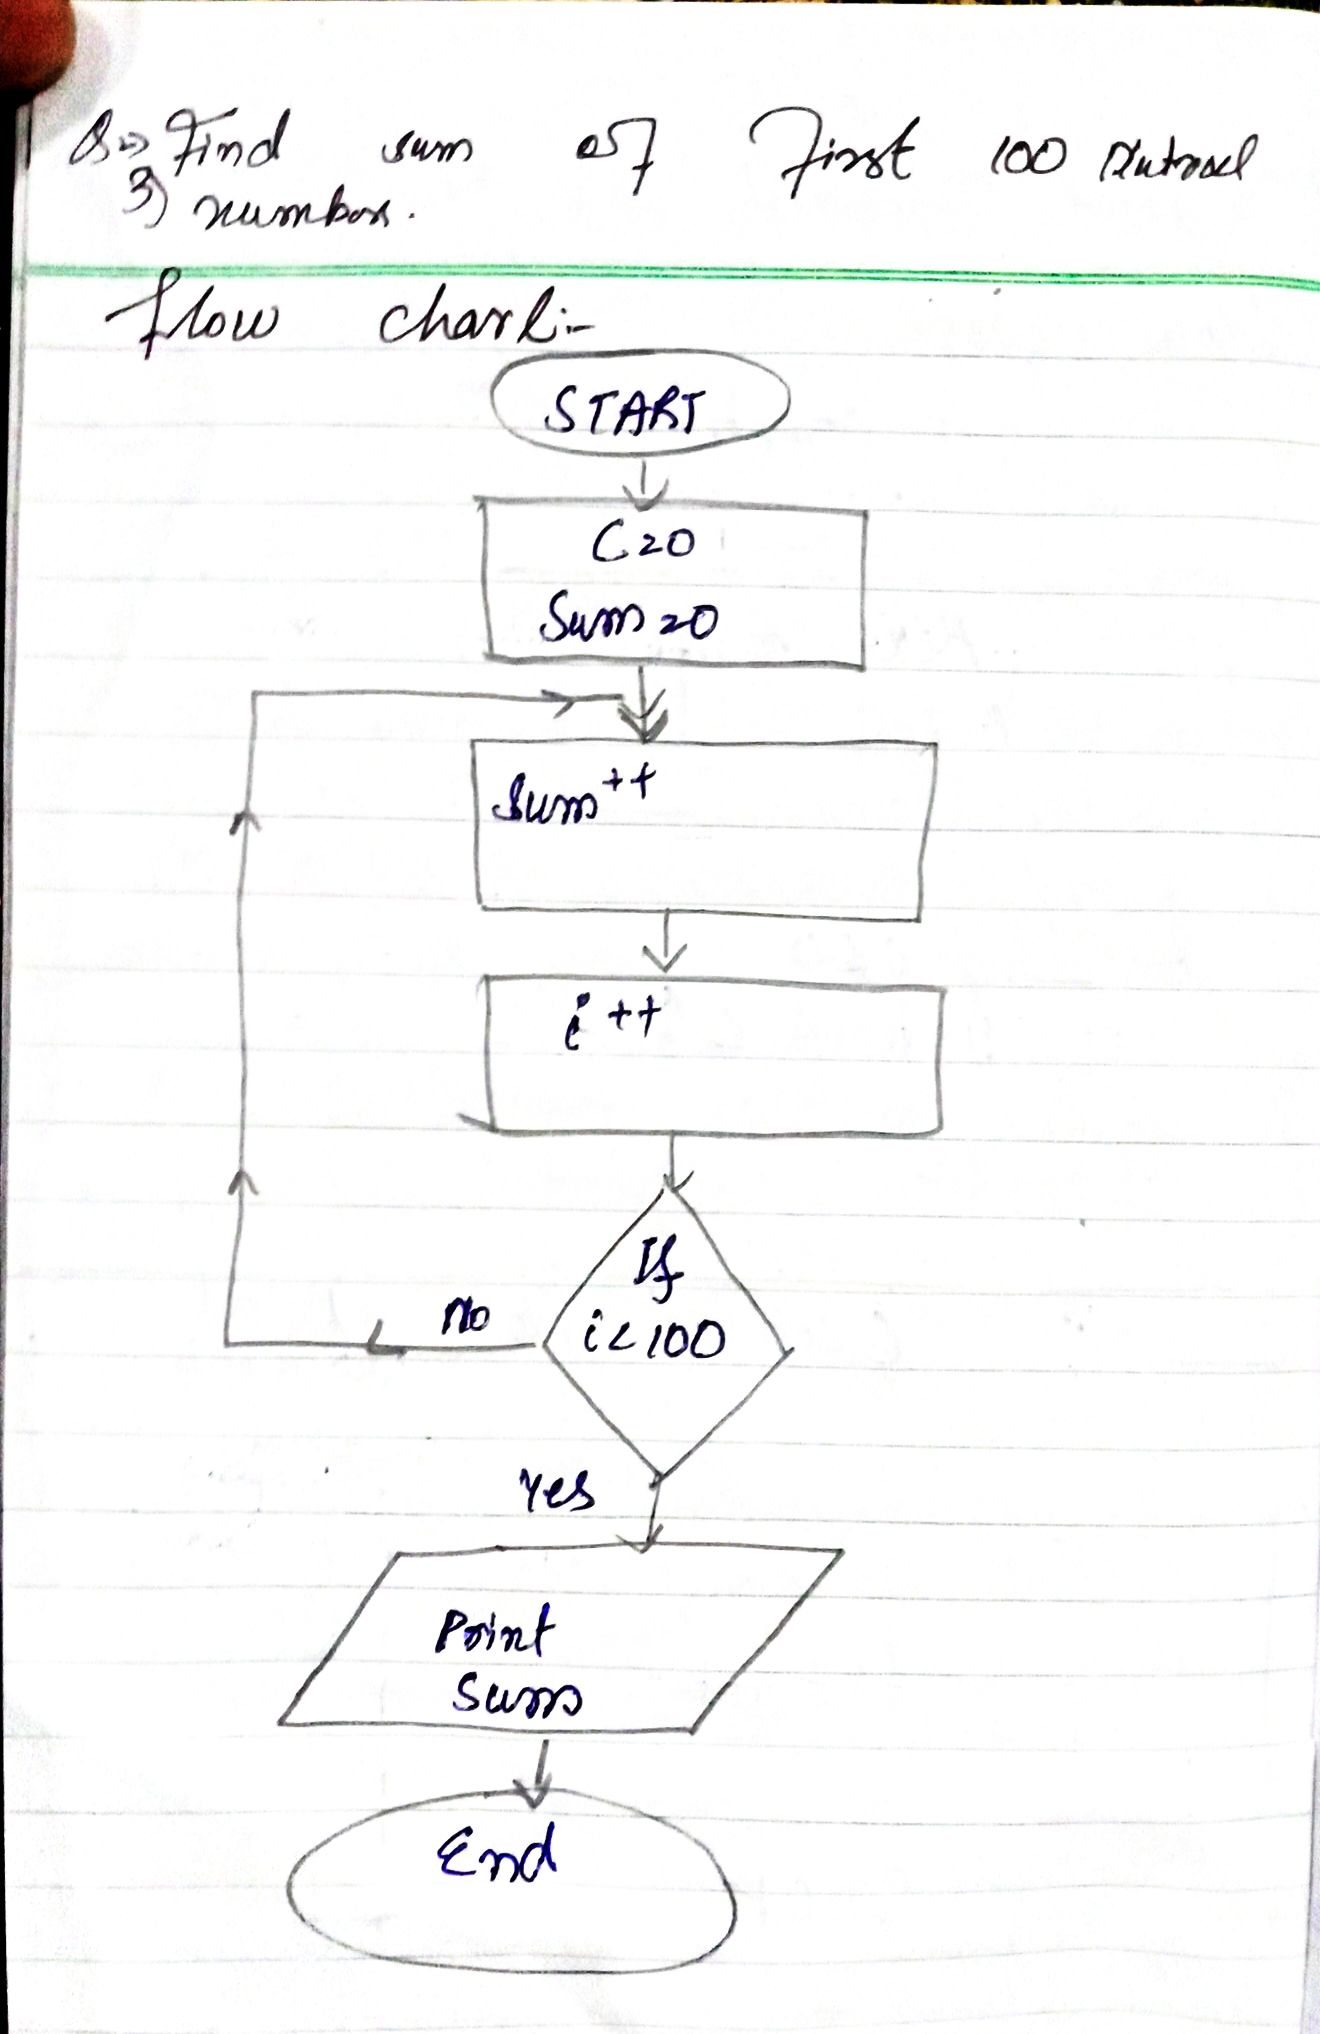 Q=> Find sum of First 100 Natural
3) numbers.
Flow chart:-
START
C=0
Sum=0
Sum++
i++
If
i<100
No
Yes
Print
Sum
End